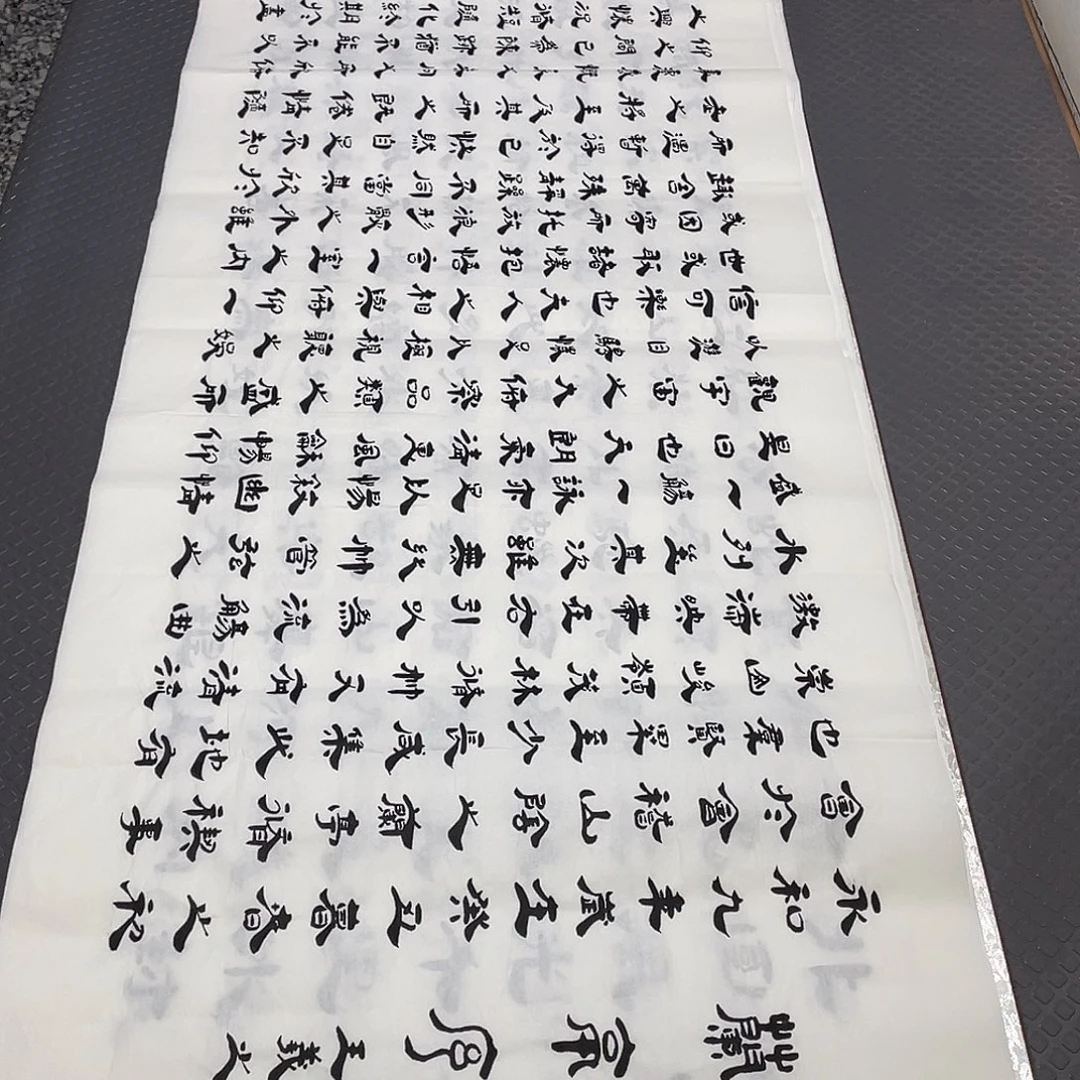 蘭亭序 王羲之
永和九年歲在癸丑暮春之初
會於會稽山陰之蘭亭脩禊事
也羣賢畢至少長咸集此地有
崇山峻嶺茂林脩竹又有清流
激湍映帶左右引以為流觴曲
水列坐其次雖無絲竹管弦之
盛一觴一詠亦足以暢敘幽情
是日也天朗氣清惠風和暢仰
觀宇宙之大俯察品類之盛所
以遊目騁懷足以極視聽之娛
信可樂也夫人之相與俯仰一
世或取諸懷抱悟言一室之內
或因寄所託放浪形骸之外雖
趣舍萬殊靜躁不同當其欣於
所遇暫得於己快然自足不知
老之將至及其所之既惓情隨